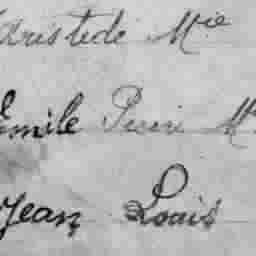 Aristide Mie
Emile Pierre M
Jean Louis